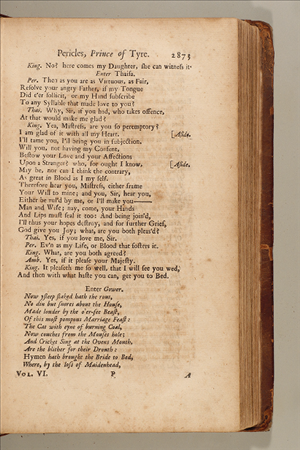 Pericles, Prince of Tyre. 2873
King. No? here comes my Daughter, she can witness it.
Enter Thaisa.
Per. Then as you are as Virtuous, as Fair,
Resolve your angry Father, if my Tongue
Did e'er sollicit, or my Hand subscribe
To any Syllable that made love to you?
Thai. Why, Sir, if you had, who takes offence,
At that would make me glad?
King. Yea, Mistress, are you so peremptory?
I am glad of it with all my Heart. [Aside.
I'll tame you, I'll bring you in subjection.
Will you, not having my Consent,
Bestow your Love and your Affections
Upon a Stranger? who, for ought I know, [Aside.
May be, nor can I think the contrary,
As great in Blood as I my self.
Therefore hear you, Mistress, either frame
Your Will to mine; and you, Sir, hear you,
Either be rul'd by me, or I'll make you——
Man and Wife; nay, come, your Hands
And Lips must seal it too: And being join'd,
I'll thus your hopes destroy, and for further Grief,
God give you Joy; what, are you both pleas'd?
Thai. Yes, if you love me, Sir.
Per. Ev'n as my Life, or Blood that fosters it.
King. What, are you both agreed?
Amb. Yes, if it please your Majesty.
King. It pleaseth me so well, that I will see you wed,
And then with what haste you can, get you to Bed.
Enter Gower.
Now ysleep slaked hath the rout,
No din but snores about the House,
Made louder by the o'er-fee Beast,
Of this most pompous Marriage Feast:
The Cat with eyne of burning Coal,
Now couches from the Mouses hole;
And Crickets Sing at the Ovens Mouth.
Are the blither for their Drouth:
Hymen hath brought the Bride to Bed,
Where, by the loss of Maidenhead,
VOL. VI. P. A